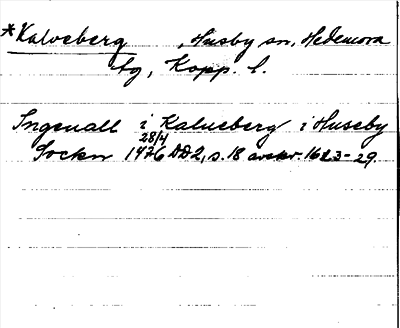 *Kalveberg, Husby sn, Hedemora
tg, Kopp. l.
Ingevall i Kalueberg i Huseby
Sockn 28/4 1476 DD2, s. 18 avskr. 1623-29.